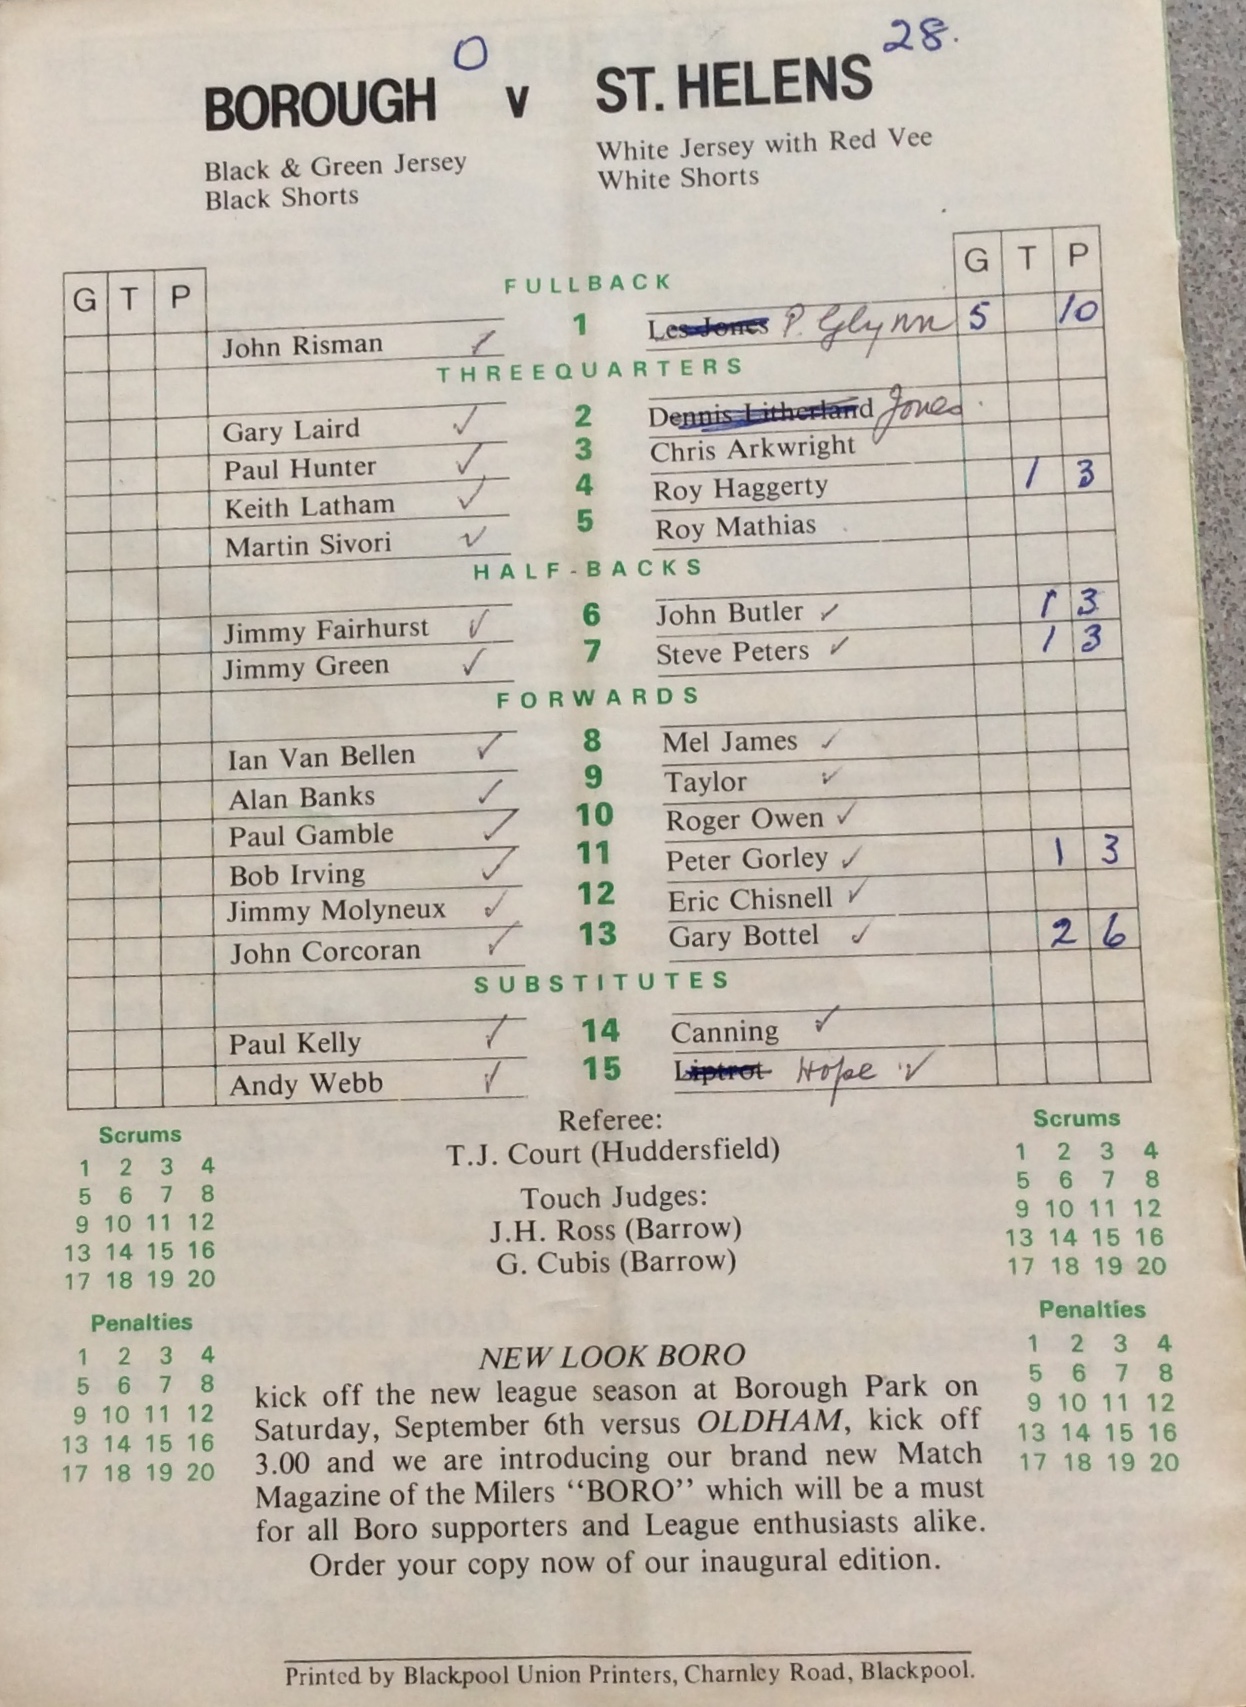 0 28.
BOROUGH v ST. HELENS
Black & Green Jersey White Jersey with Red Vee
Black Shorts White Shorts
G T P G T P
FULLBACK
John Risman 1 Les Jones P. Glynn 5 10
THREEQUARTERS
Gary Laird 2 Dennis Litherland Jones
Paul Hunter 3 Chris Arkwright
Keith Latham 4 Roy Haggerty 1 3
Martin Sivori 5 Roy Mathias
HALF-BACKS
Jimmy Fairhurst 6 John Butler 1 3
Jimmy Green 7 Steve Peters 1 3
FORWARDS
Ian Van Bellen 8 Mel James
Alan Banks 9 Taylor
Paul Gamble 10 Roger Owen
Bob Irving 11 Peter Gorley 1 3
Jimmy Molyneux 12 Eric Chisnell
John Corcoran 13 Gary Bottel 2 6
SUBSTITUTES
Paul Kelly 14 Canning
Andy Webb 15 Liptrot Hope
Referee:
T.J. Court (Huddersfield)
Touch Judges:
J.H. Ross (Barrow)
G. Cubis (Barrow)
Scrums
1 2 3 4
5 6 7 8
9 10 11 12
13 14 15 16
17 18 19 20
Penalties
1 2 3 4
5 6 7 8
9 10 11 12
13 14 15 16
17 18 19 20
Scrums
1 2 3 4
5 6 7 8
9 10 11 12
13 14 15 16
17 18 19 20
Penalties
1 2 3 4
5 6 7 8
9 10 11 12
13 14 15 16
17 18 19 20
NEW LOOK BORO
kick off the new league season at Borough Park on
Saturday, September 6th versus OLDHAM, kick off
3.00 and we are introducing our brand new Match
Magazine of the Milers “BORO” which will be a must
for all Boro supporters and League enthusiasts alike.
Order your copy now of our inaugural edition.
Printed by Blackpool Union Printers, Charnley Road, Blackpool.